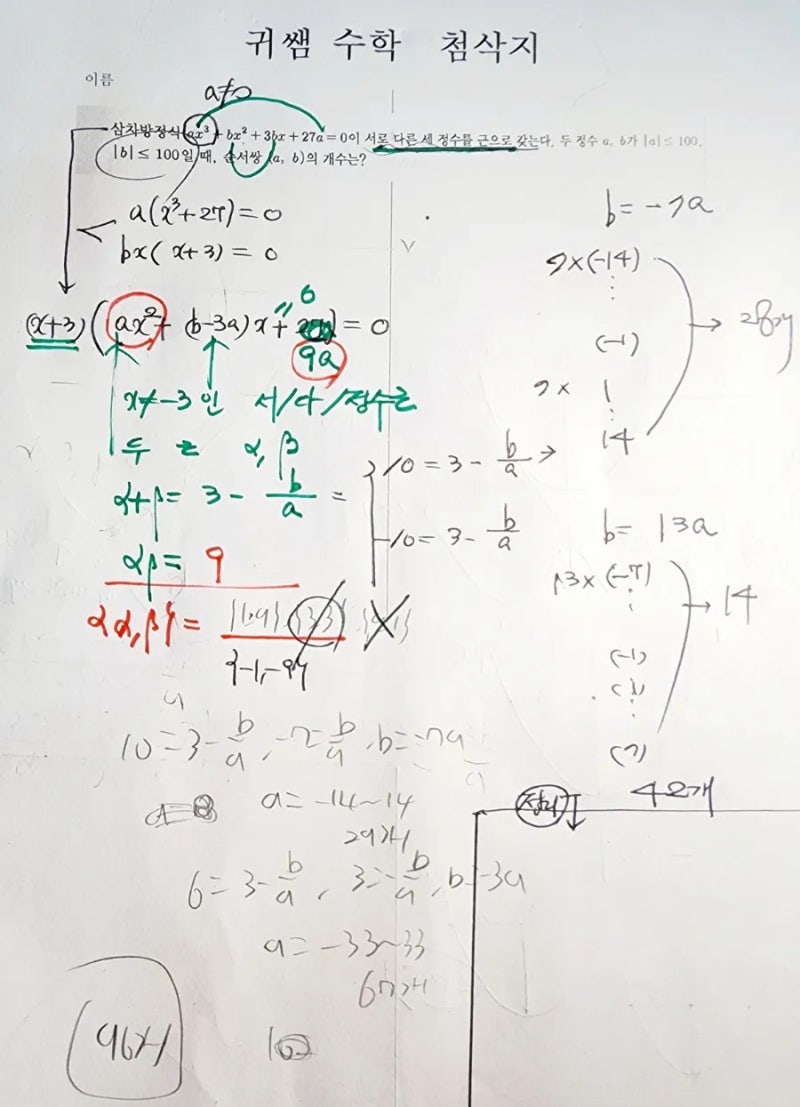 귀쌤 수학 첨삭지
이름
a≠0
삼차방정식 ax³ + bx² + 3bx + 27a = 0이 서로 다른 세 정수를 근으로 갖는다. 두 정수 a, b가 |a| ≤ 100,
|b| ≤ 100일 때, 순서쌍 (a, b)의 개수는?
a(x³+27) = 0
bx( x+3) = 0
(x+3)(ax² + (b-3a)x + 9a) = 0
x≠-3인 서/다/정수근
두 근 α, β
α+β = 3 - b/a =
10 = 3 - b/a →
-10 = 3 - b/a
αβ = 9
{α,β} = {1,9} {3,3}
{-1,-9}
10 = 3 - b/a, -7 = b/a, b = -7a
a = -14~14
29개
6 = 3 - b/a, 3 = -b/a, b = -3a
a = -33~33
67개
96개
b = -7a
7×(-14)
(-1)
7× 1
14
→ 28개
b = 13a
13×(-7)
(-1)
(1)
(7)
→ 14
42개
정리